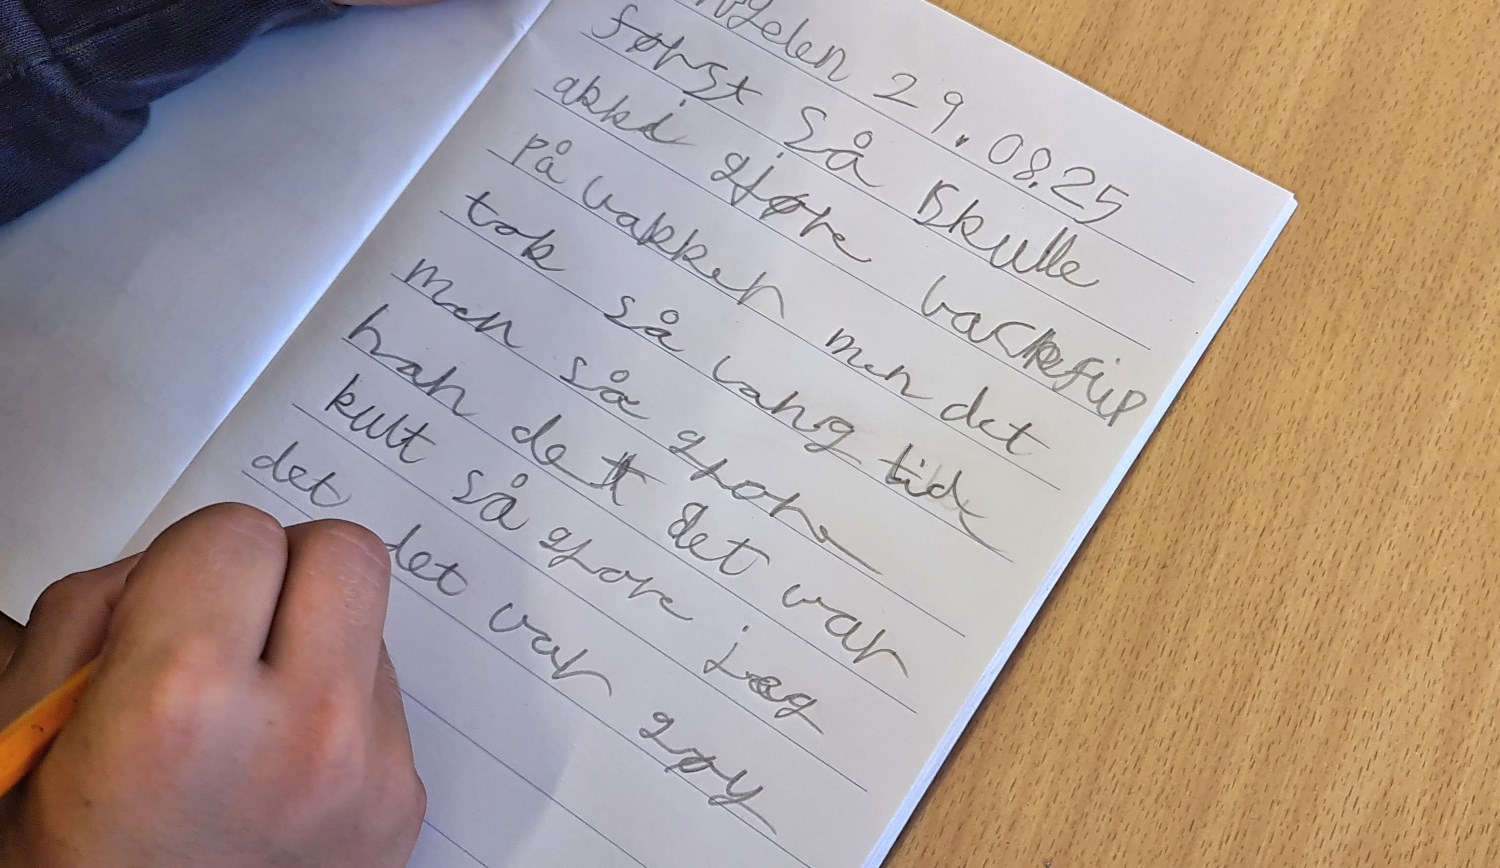 29.08.25
først så skulle
akki gjøre backflip
på bakken men det
tok så lang tid
men så gjore
han det det var
kult så gjore jeg
det det var gøy